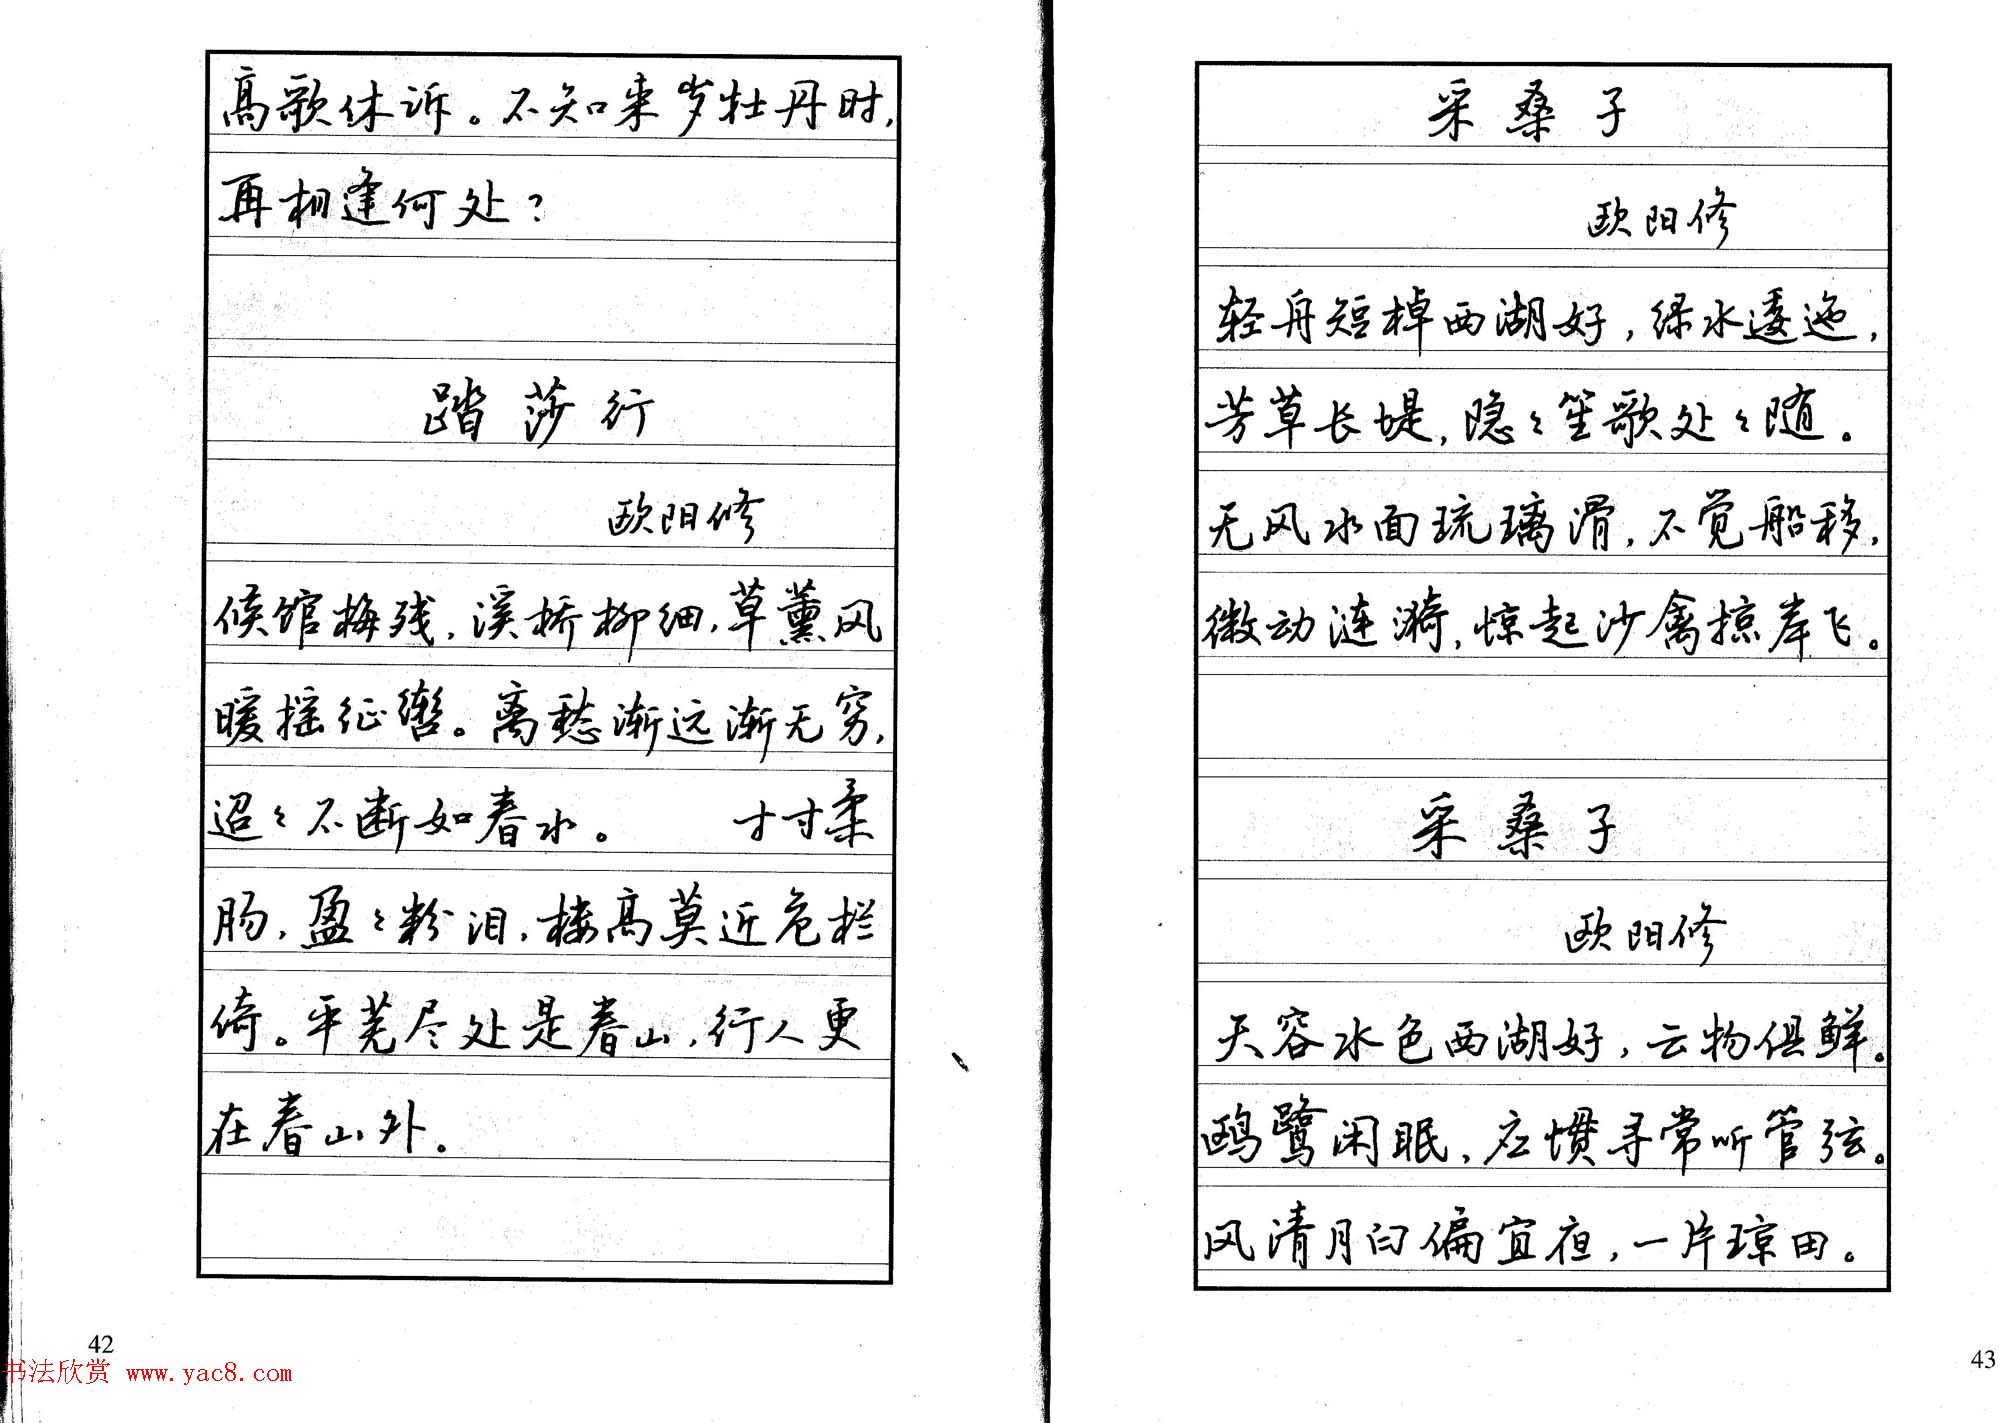 高歌休诉。不知来岁牡丹时,
再相逢何处?
踏莎行
欧阳修
候馆梅残,溪桥柳细,草薰风
暖摇征辔。离愁渐远渐无穷,
迢々不断如春水。 寸寸柔
肠,盈々粉泪,楼高莫近危栏
倚。平芜尽处是春山,行人更
在春山外。
42
采桑子
欧阳修
轻舟短棹西湖好,绿水逶迤,
芳草长堤,隐々笙歌处々随。
无风水面琉璃滑,不觉船移,
微动涟漪,惊起沙禽掠岸飞。
采桑子
欧阳修
天容水色西湖好,云物俱鲜。
鸥鹭闲眠,应惯寻常听管弦。
风清月白偏宜夜,一片琼田。
43
书法欣赏 www.yac8.com